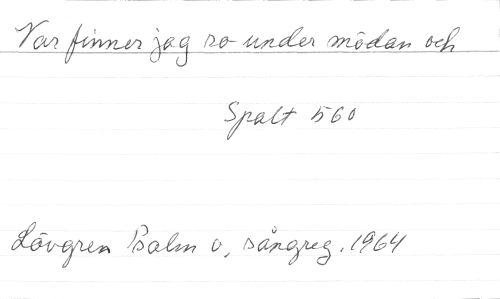 Var finner jag ro under mödan och
Spalt 560
Lövgren Psalm o, sångreg. 1964